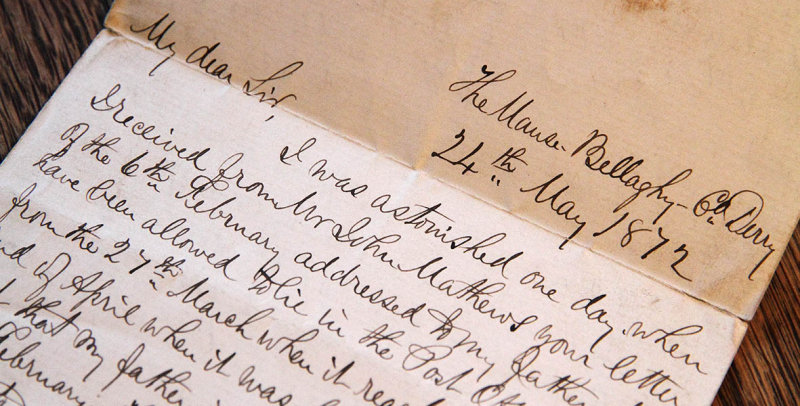 The Manse Bellaghy Co. Derry
24th May 1872
My dear Sir,
I was astonished one day, when
I received from Mr John Mathews your letter
of the 6th February addressed to my father
have been allowed to lie in the Post
from the 27th March when it
of April when it was
that my father
February